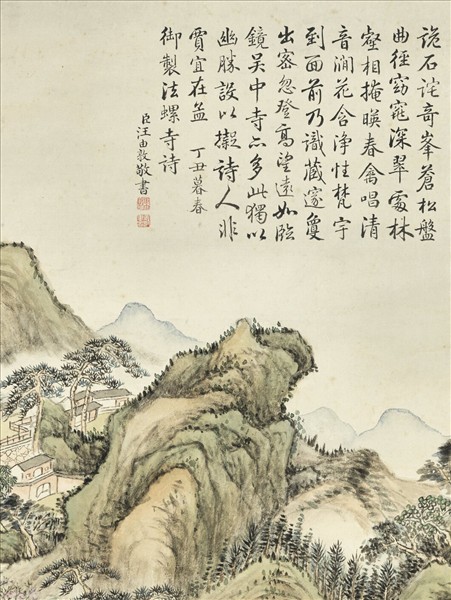 詭石詫奇峯蒼松盤
曲徑窈窕深翠處林
壑相掩暎春禽唱清
音澗花含淨性梵宇
到面前乃識藏邃夐
出密忽登高望遠如臨
鏡吳中寺亦多此獨以
幽勝設以擬詩人非
賈宜在孟 丁丑暮春
御製法螺寺詩
臣汪由敦敬書